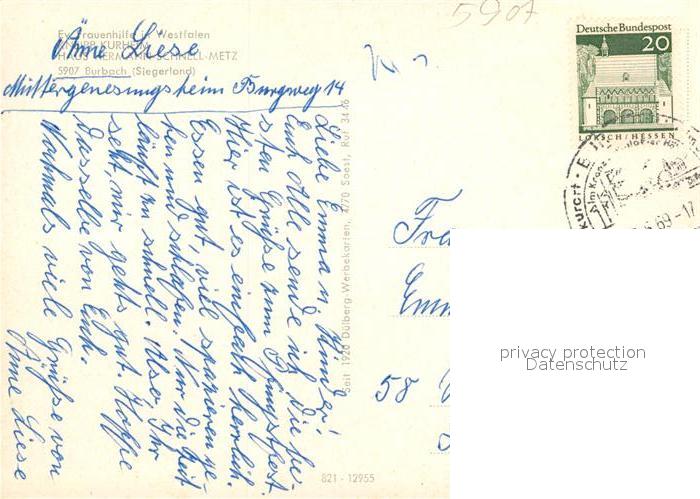 5907
Ev. Frauenhilfe in Westfalen
Änne Liese
KNAPP. KURHEIM
HAUS HERMANN-SCHNELL-METZ
5907 Burbach (Siegerland)
Müttergenesungsheim Burgweg 14
Liebe Emma u. Kinder!
Euch Alle sende ich die be-
sten Grüße zum Pfingstfest.
Hier ist es einfach herrlich.
Essen gut, viel spazieren ge-
hen und schlafen. Nur die Zeit
läuft zu schnell. Also, Ihr
seht, mir gehts gut. Hoffe
dasselbe von Euch.
Nochmals viele Grüße von
Änne Liese
Seit 1920 Dülberg-Werbekarten, 4770 Soest, Ruf 3446
821 - 12955
Deutsche Bundespost
20
LORSCH/HESSEN
kurort
69-17
Fra
Emm
58
privacy protection
Datenschutz